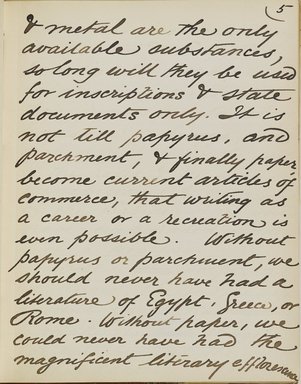 5
& metal are the only
available substances,
so long will they be used
for inscriptions & state
documents only. It is
not till papyrus, and
parchment, & finally paper
become current articles of
commerce, that writing as
a career or a recreation is
even possible. Without
papyrus or parchment, we
should never have had a
literature of Egypt, Greece, or
Rome. Without paper, we
could never have had the
magnificent literary efflorescence